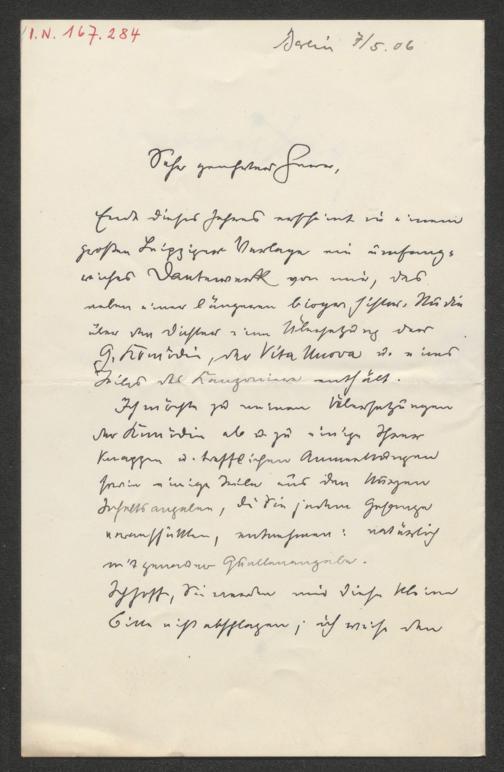 I.N. 167.284
Berlin 7/5.06
Sehr geehrter Herr,
Ende dieses Jahres erscheint in einem
großen Leipziger Verlage ein umfang-
reiches Dantewerk von mir, das
neben einer längeren biogr. histor. Studie
über den Dichter eine Übersetzung der
G. Komödie, der Vita Nuova u. eines
Teiles des Kanzoniere enthält.
Ich möchte zu meinen Übersetzungen
der Komödie ab u. zu einige Ihrer
knappen u. trefflichen Anmerkungen
sowie einige Teile aus den kurzen
Inhaltsangaben, die Sie jedem Gesange
vorausschicken, entnehmen: natürlich
mit genauer Quellenangabe.
Ich hoffe, Sie werden mir diese kleine
Bitte nicht abschlagen; ich weiß den